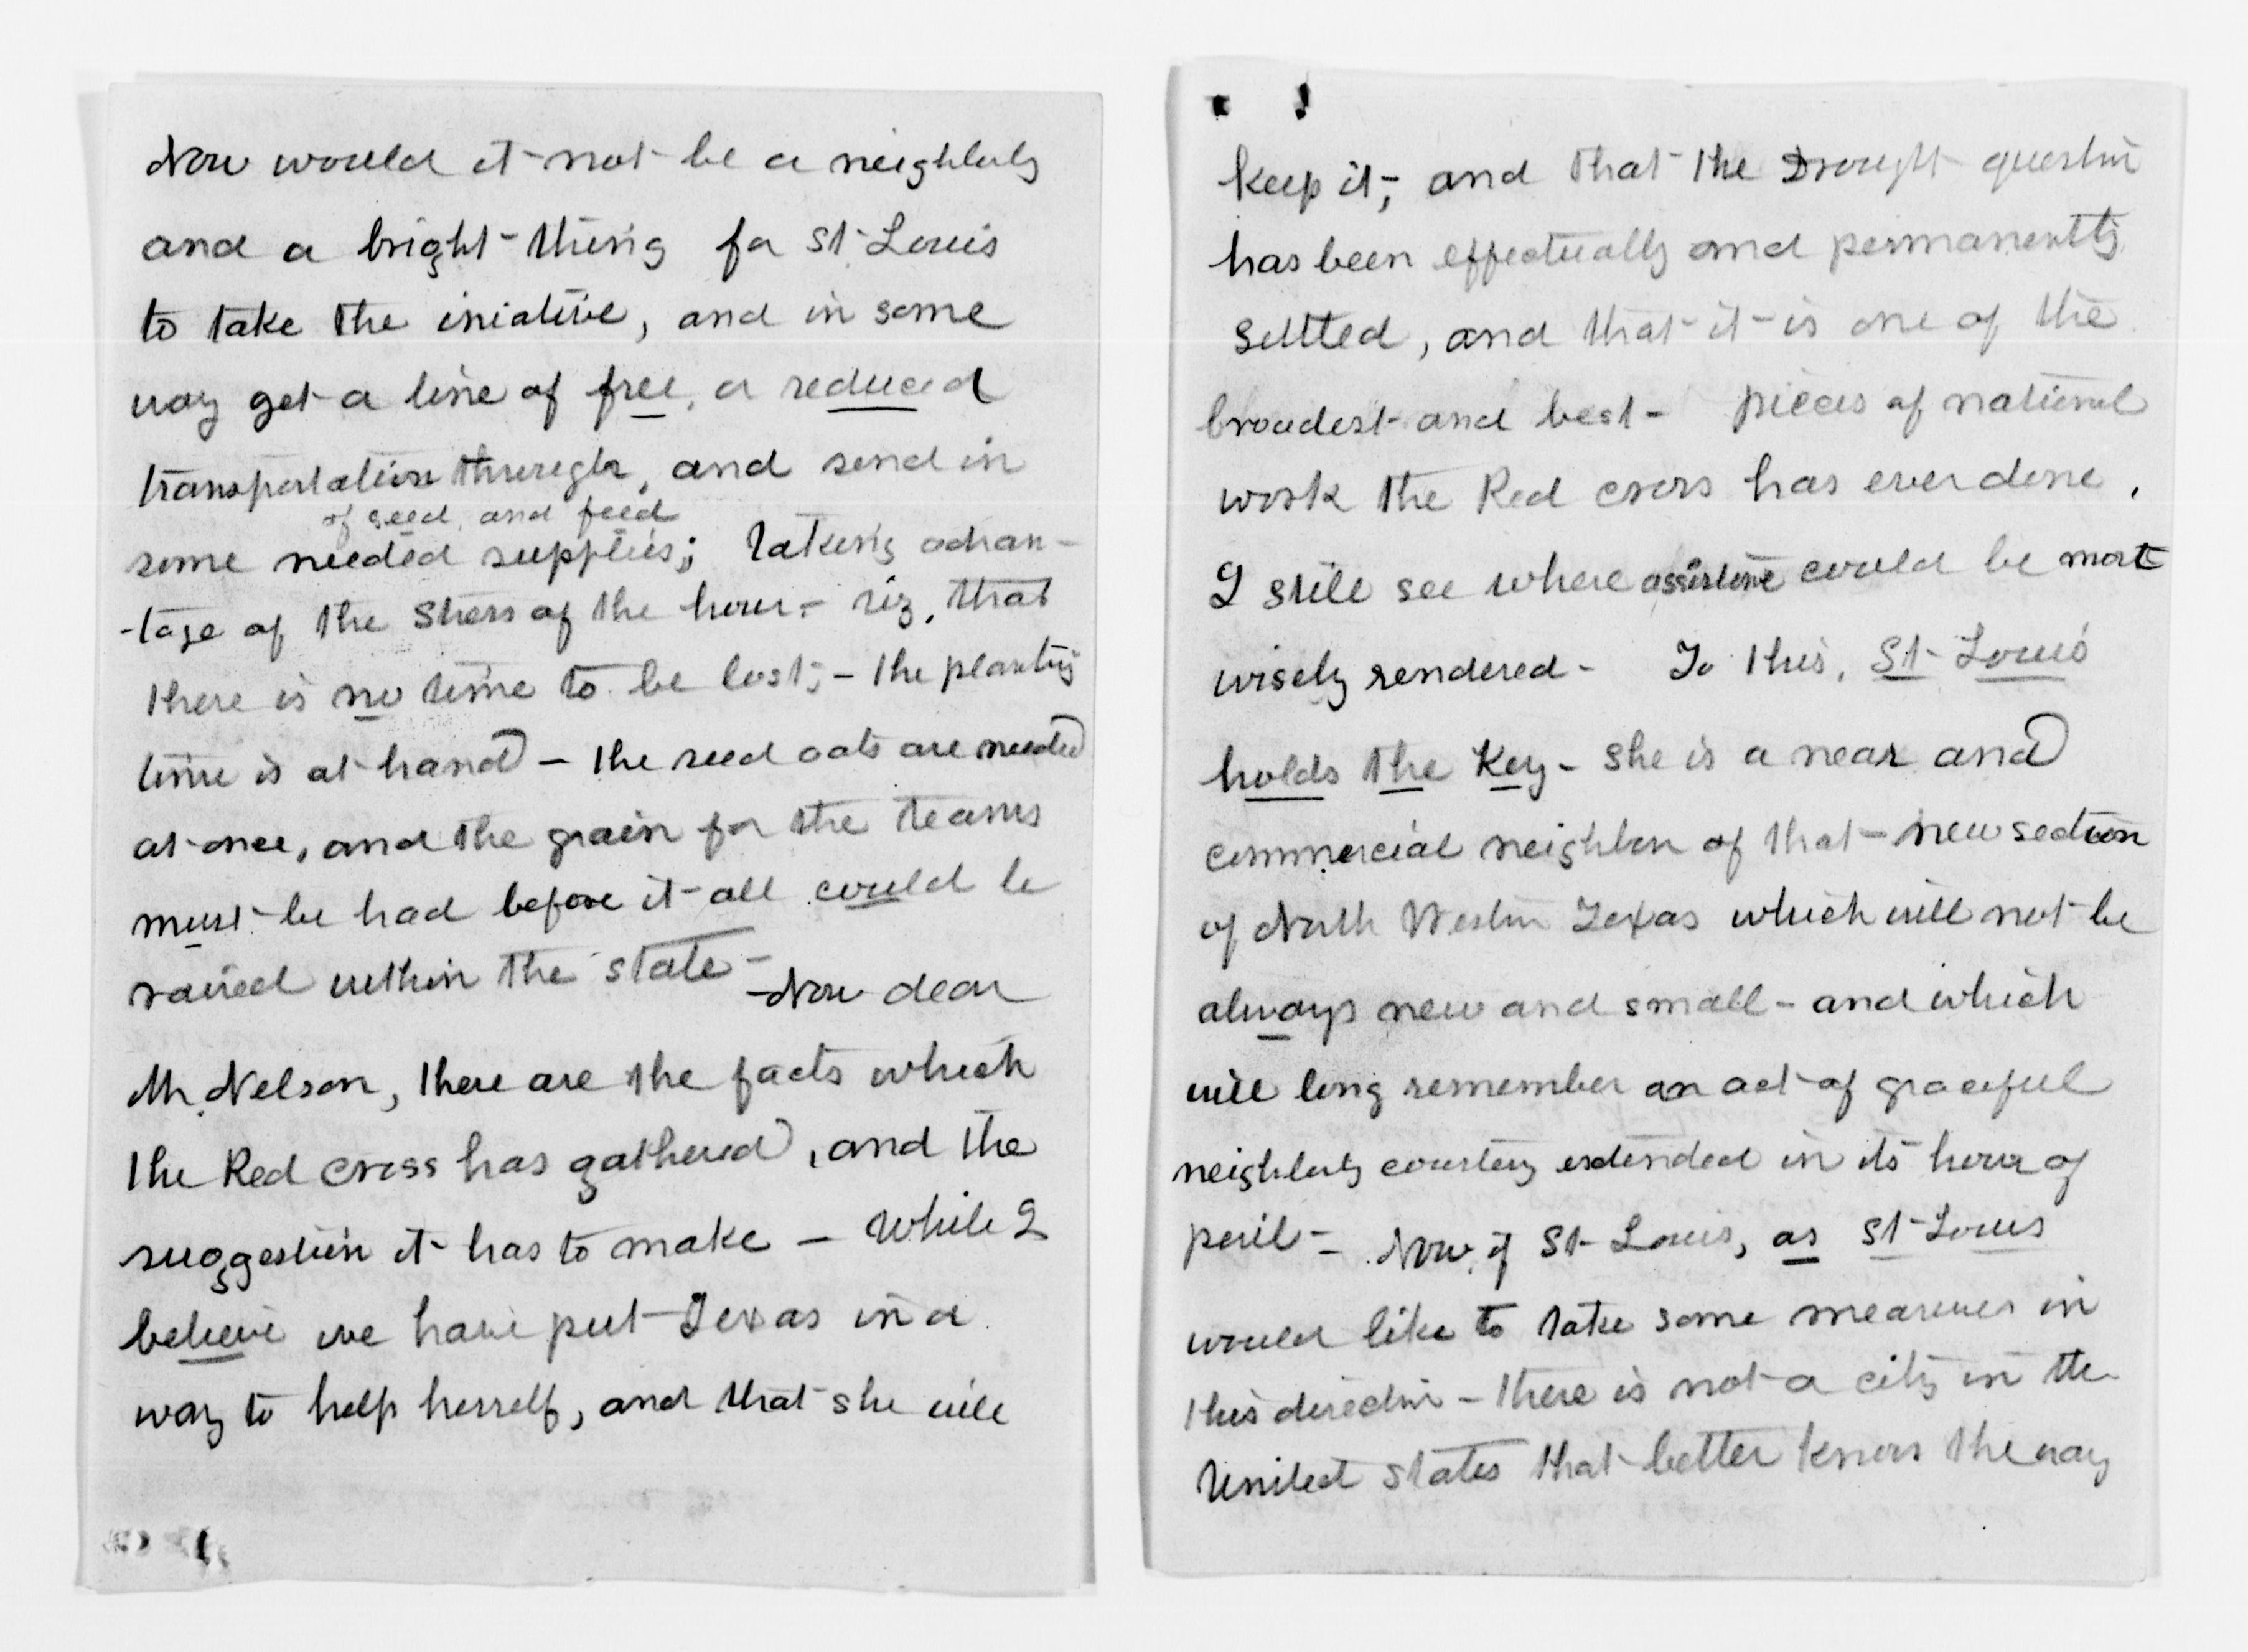 Now would it not be a neighborly
and a bright thing for St Louis
to take the iniative, and in some
way get a line of free, or reduced
transportation through, and send in
of seed, and feed
some needed supplies; taking advan-
-tage of the stress of the hour - viz, that
there is no time to be lost; - the planting
time is at hand - the seed oats are needed
at once, and the grain for the teams
must be had before it all could be
raised within the state -
- Now dear
Mr. Nelson, there are the facts which
the Red Cross has gathered, and the
suggestion it has to make - While I
believe we have put Texas in a
way to help herself, and that she will
keep it; and that the Drought question
has been effectually and permanently
settled, and that it is one of the
broadest and best - pieces of national
work the Red cross has ever done.
I still see where assistance could be most
wisely rendered - To this, St Louis
holds the Key - she is a near and
commercial neighbor of that - new section
of North Western Texas which will not be
always new and small - and which
will long remember an act of graceful
neighborly courtesy extended in its hour of
peril - Now, if St Louis, as St Louis
would like to take some measures in
this direction - there is not a city in the
United States that better knows the way